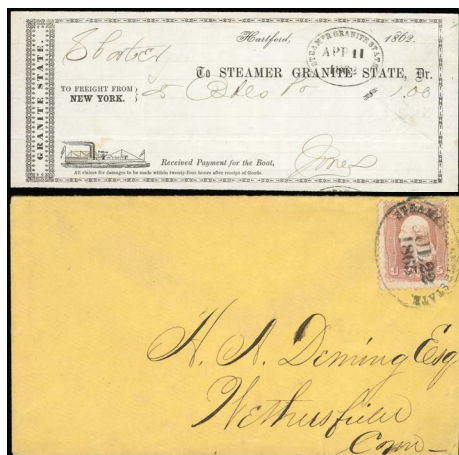 GRANITE STATE.
Hartford, 1862.
STEAMER GRANITE STATE
APR 11
To STEAMER GRANITE STATE, Dr.
TO FREIGHT FROM
NEW YORK.
1.00
Received Payment for the Boat,
Jones
All claims for damages to be made within twenty-four hours after receipt of Goods.
STEAMER STATE
JUL 22
1865
H. A. Deming Esq
Wethersfield
Conn